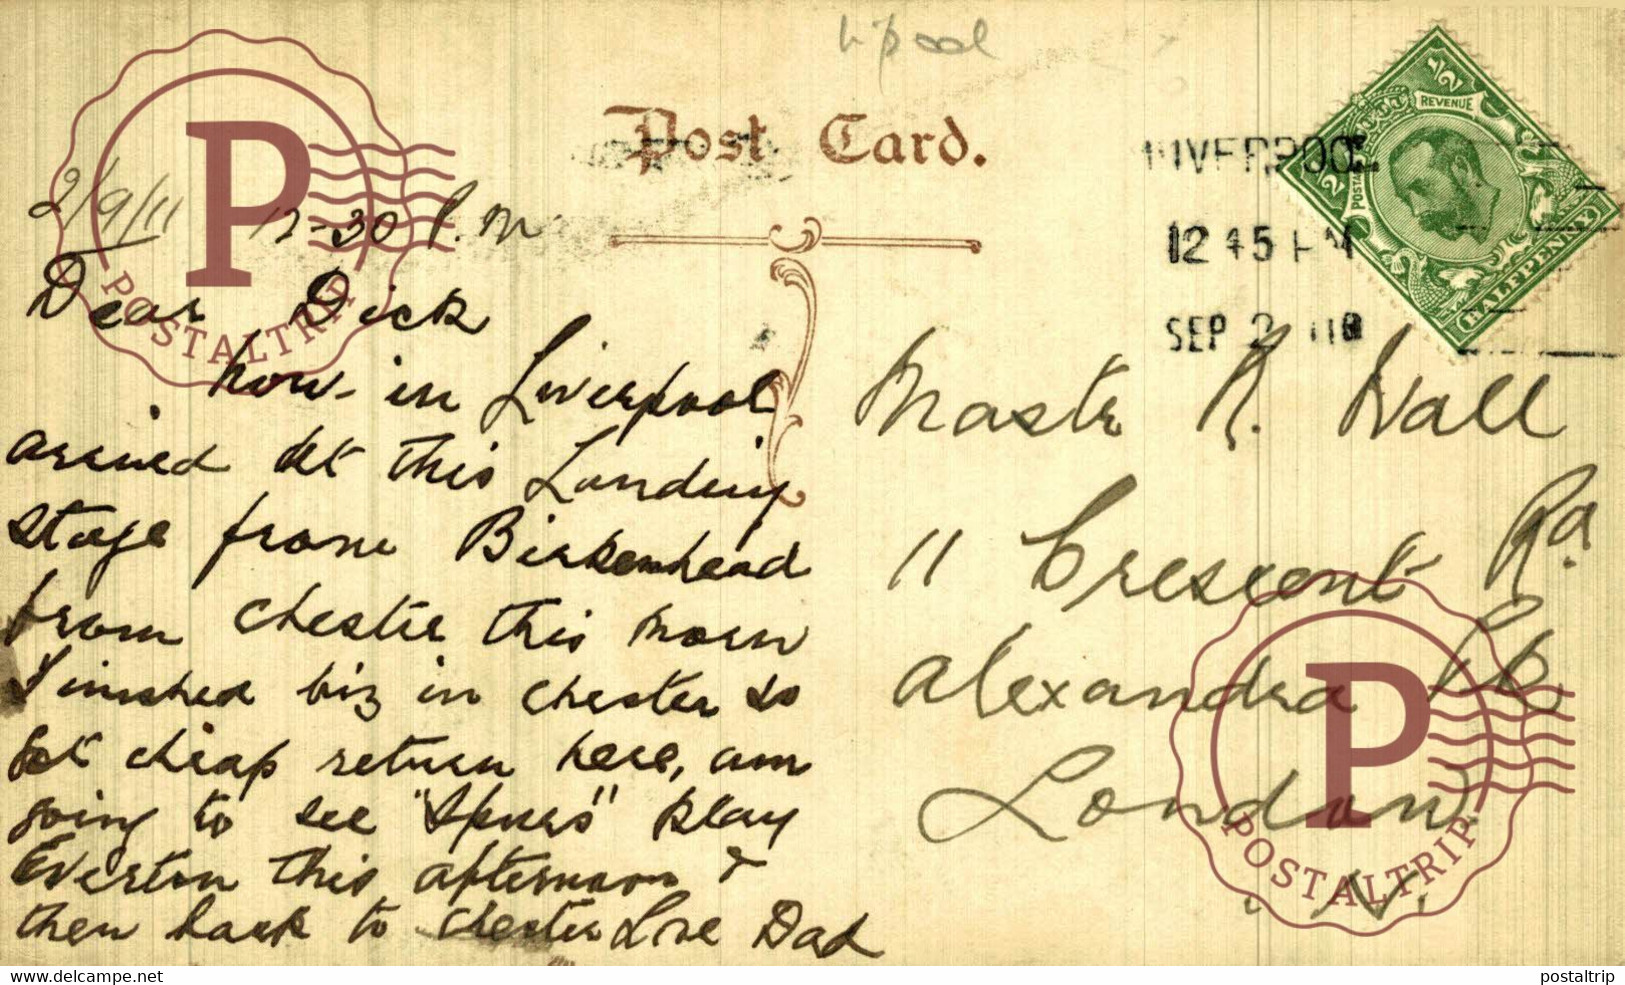 L'pool
Post Card.
LIVERPOOL
12 45 PM
SEP 2 11
REVENUE
POSTAGE
1/2
1/2
HALFPENNY
2/9/11 12-30 P.M
Dear Dick
now in Liverpool
arrived at this Landing
stage from Birkenhead
from Chester this morn
Finished biz in Chester so
got cheap return here, am
going to see "Spurs" play
Everton this afternoon &
then back to Chester Love Dad
Mastr R. Wall
11 Crescent Rd.
Alexandra Pk.
London
N.
P
POSTALTRIP
P
POSTALTRIP
https://www.delcampe.net
postaltrip